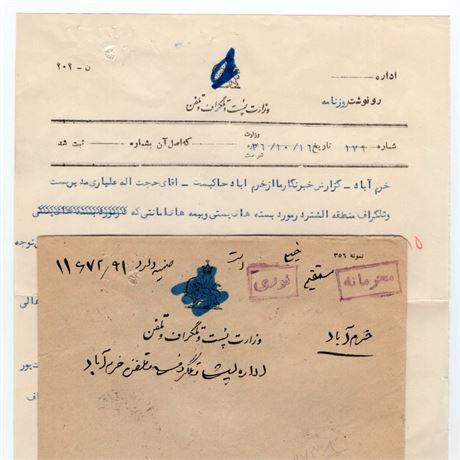 اداره
ن - ۲۰۲
رونوشت روزنامه
وزارت پست و تلگراف و تلفن
شماره ۱۷۹ تاریخ ۳۶/۱۰/۱۶ که اصل آن بشماره ثبت شد
وزارت
خرم آباد - گزارش خبرنگار ما از خرم اباد حاکیست - اقای حجت اله علیاری مدیر پست
و تلگراف منطقه الشتر در مورد بسته های پستی و بیمه ها و اماناتی که
توجه
۱۵
نمونه ۳۵۶
محرمانه
فوری
مستقیم
۱۱۶۷۲/۹۱
عالی
وزارت پست و تلگراف و تلفن
خرم آباد
اداره پست و تلگراف و تلفن خرم آباد
پور
اف